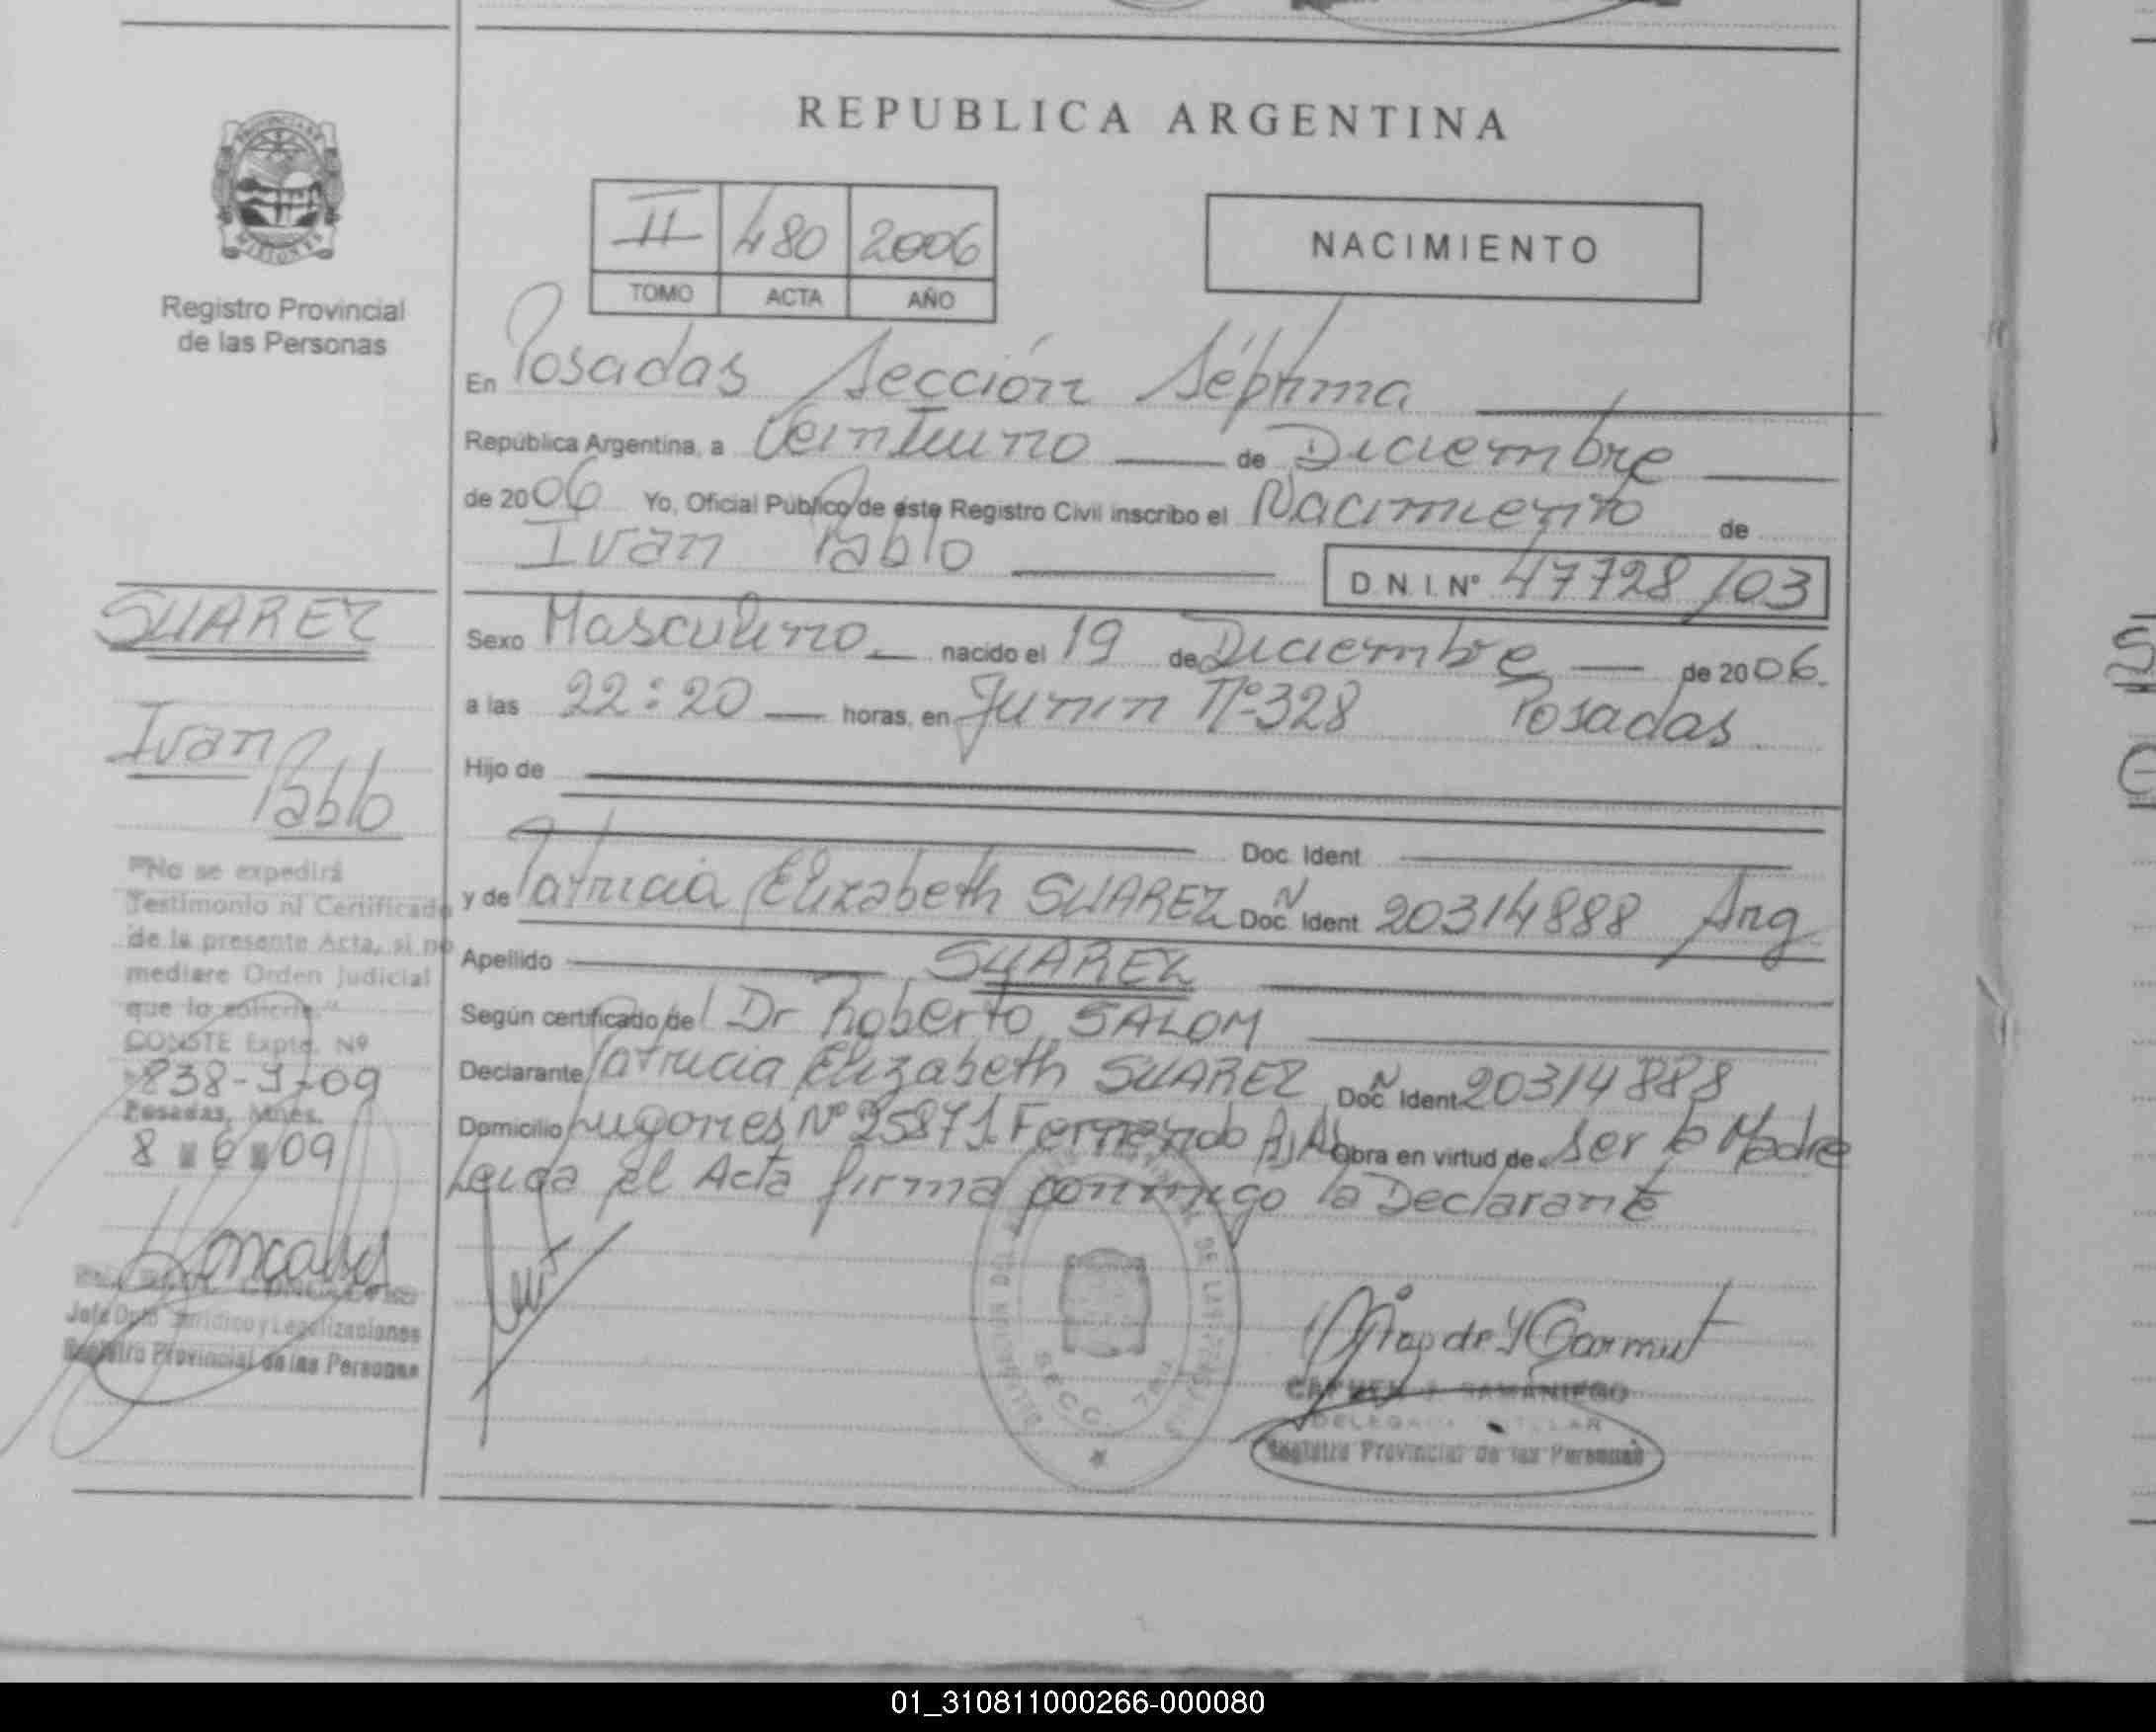 REPUBLICA ARGENTINA
II 480 2006
TOMO ACTA AÑO
NACIMIENTO
Registro Provincial
de las Personas
En Posadas Sección Séptima
República Argentina, a Veintiuno de Diciembre
de 2006 Yo, Oficial Público de este Registro Civil inscribo el Nacimiento de
Ivan Pablo
D.N.I. Nº 47728103
Sexo Masculino nacido el 19 de Diciembre de 2006.
a las 22:20 horas, en Junin Nº 328 Posadas
Hijo de
Doc. Ident
y de Patricia Elizabeth SUAREZ Doc. Ident N 20314888 Arg
Apellido SUAREZ
Según certificado del Dr Roberto SALOM
Declarante Patricia Elizabeth SUAREZ Doc. Ident N 20314888
Domicilio Lugones Nº 2587 Obra en virtud de Ser la Madre
Leida el Acta firma conmigo la Declarante
SUAREZ
Ivan
Pablo
"No se expedirá
Testimonio ni Certificado
de la presente Acta, si no
mediare Orden Judicial
que lo solicite."
CONSTE Expte. Nº
838-J-09
Posadas, Mnes.
8 6 09
Jefe Dpto Jurídico y Legalizaciones
Registro Provincial de las Personas
SECC. 7ma
CARMEN SAMANIEGO
DELEGADA TITULAR
Registro Provincial de las Personas
01_310811000266-000080